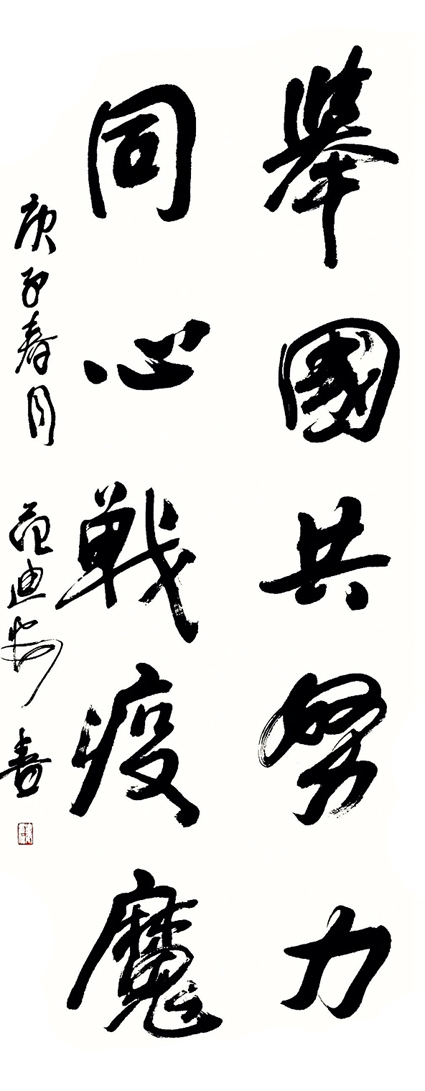 舉國共努力
同心戰疫魔
庚子春月 范迪安書